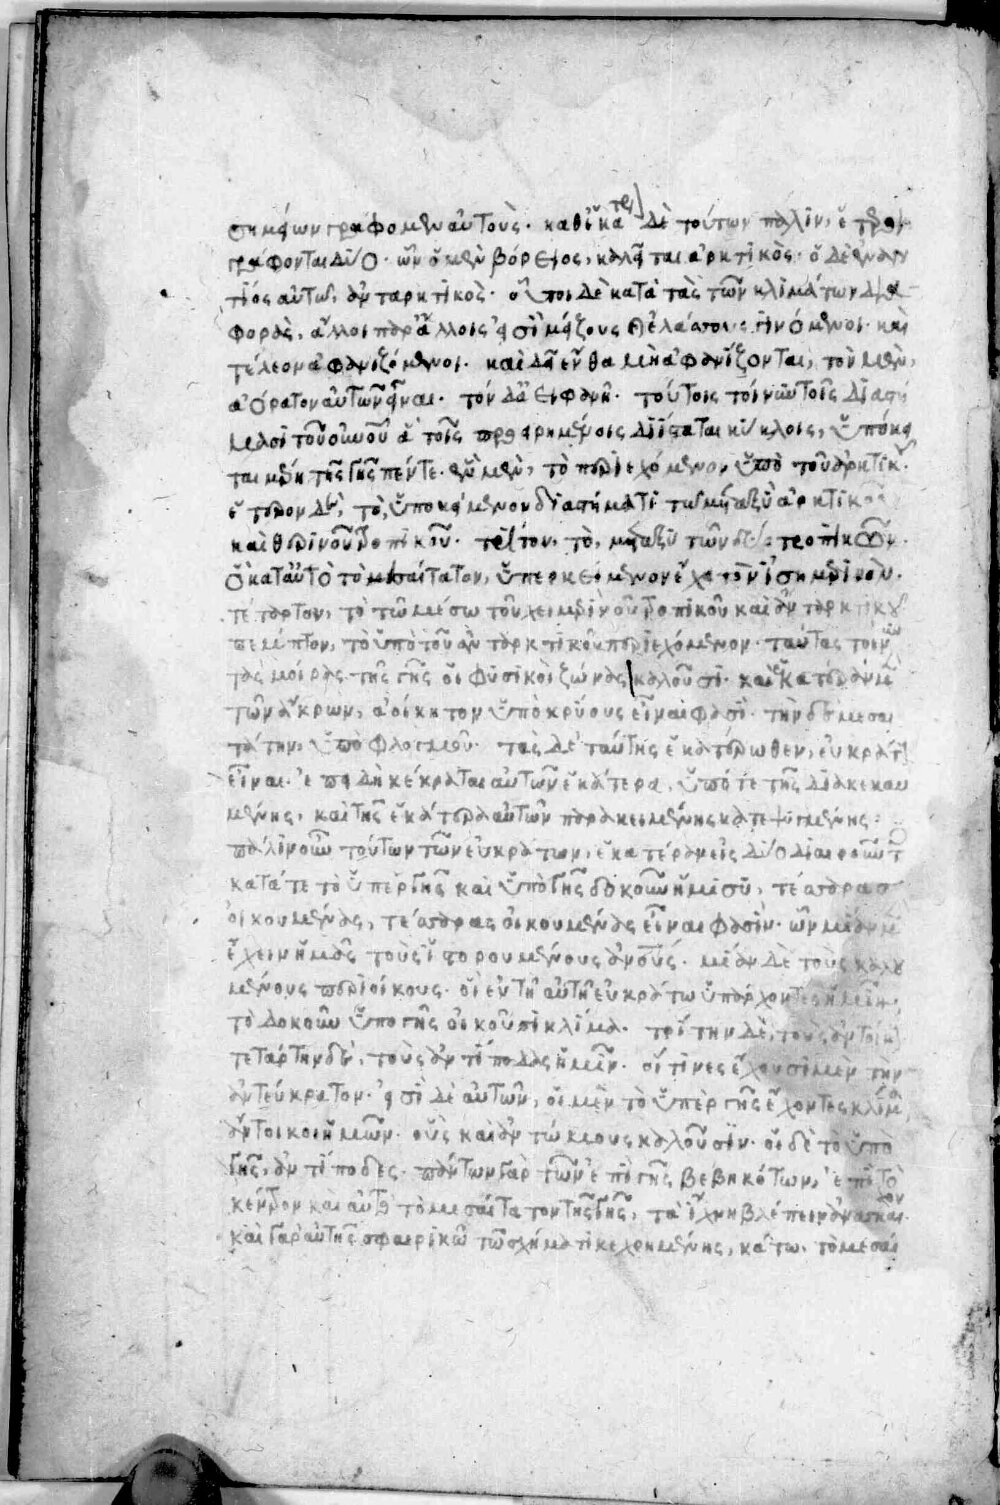 σημείων γράφομεν αὐτούς· καθ' ἑκάτερα δὲ τούτων πάλιν, ἕτεροι
γράφονται δύο· ὧν ὁ μὲν βόρειος, καλεῖται ἀρκτικός· ὁ δὲ ἐναν
τίος αὐτῶ, ἀνταρκτικός· οὗτοι δὲ κατὰ τὰς τῶν κλιμάτων δια
φορὰς, ἄλλοι παρ' ἄλλοις εἰσὶ μείζους ἢ ἐλάσσους γινόμενοι· καὶ
τέλεον ἀφανιζόμενοι· καὶ δὴ ἔνθα μὴ ἀφανίζονται, τὸν μὲν,
ἀόρατον αὐτῶν εἶναι· τὸν δὲ ἀειφανῆ· τούτοις τοίνυν τοῖς διαστή
μασι τοῦ οὐρανοῦ ἃ τοῖς προειρημένοις διίσταται κύκλοις, ὑπόκει
ται μέρη τῆς γῆς πέντε· ἓν μὲν, τὸ περιεχόμενον ὑπὸ τοῦ ἀρκτικοῦ·
ἕτερον δὲ, τὸ ὑποκείμενον διαστήματι τῶ μεταξὺ ἀρκτικοῦ
καὶ θερινοῦ τροπικοῦ· τρίτον, τὸ μεταξὺ τῶν δύο τροπικῶν·
ὃ κατ' αὐτὸ τὸ μεσαίτατον, ὑπερκείμενον ἔχει τὸν ἰσημερινόν·
τέταρτον, τὸ τῶ μέσω τοῦ χειμερινοῦ τροπικοῦ καὶ ἀνταρκτικοῦ·
πέμπτον, τὸ ὑπὸ τοῦ ἀνταρκτικοῦ περιεχόμενον· ταύτας τοίνυν
τὰς μοίρας τῆς γῆς οἱ φυσικοὶ ζώνας καλοῦσι· καὶ ἑκατέραν μὲν
τῶν ἄκρων, ἀοίκητον ὑπὸ κρύους εἶναι φασί· τὴν δὲ μεσαι
τάτην, ὑπὸ φλογμοῦ· τὰς δὲ ταύτης ἑκατέρωθεν, εὐκράτους
εἶναι· ἐπειδὴ κέκραται αὐτῶν ἑκάτερα, ὑπό τε τῆς διακεκαυ
μένης, καὶ τῆς ἑκατέρα αὐτῶν παρακειμένης κατεψυγμένης·
πάλιν οὖν τούτων τῶν εὐκράτων, ἑκατέραν εἰς δύο διαιροῦντες
κατά τε τὸ ὑπὲρ γῆς καὶ ὑπὸ γῆς δοκοῦν ἥμισυ, τέσσαρας
οἰκουμένας, τέσσαρας οἰκουμένας εἶναι φασίν· ὧν μίαν μὲν
ἔχειν ἡμᾶς τοὺς ἱστορουμένους ἀνθρώπους· μίαν δὲ τοὺς καλου
μένους περιοίκους· οἳ ἐν τῆ αὐτῆ εὐκράτω ὑπάρχοντες ἡμῖν,
τὸ δοκοῦν ὑπὸ γῆς οἰκοῦσι κλίμα· τρίτην δὲ, τοὺς ἀντοίκους
τετάρτην δὲ, τοὺς ἀντίποδας ἡμῖν· οἵτινες ἔχουσι μὲν τὴν
ἀντεύκρατον· εἰσὶ δὲ αὐτῶν, οἱ μὲν τὸ ὑπὲρ γῆς ἔχοντες κλίμα,
ἄντοικοι ἡμῶν· οὓς καὶ ἀντώμους καλοῦσιν· οἱ δὲ τὸ ὑπὸ
γῆς, ἀντίποδες· πάντων γὰρ τῶν ἐπὶ γῆς βεβηκότων, ἐπὶ τὸ
κέντρον καὶ αὐτὸ τὸ μεσαίτατον τῆς γῆς, τὰ ἴχνη βλέπειν ἀναγκαῖον·
καὶ γὰρ αὐτῆς σφαιρικῶ τῶ σχήματι κεχρημένης, κάτω τὸ μεσαί